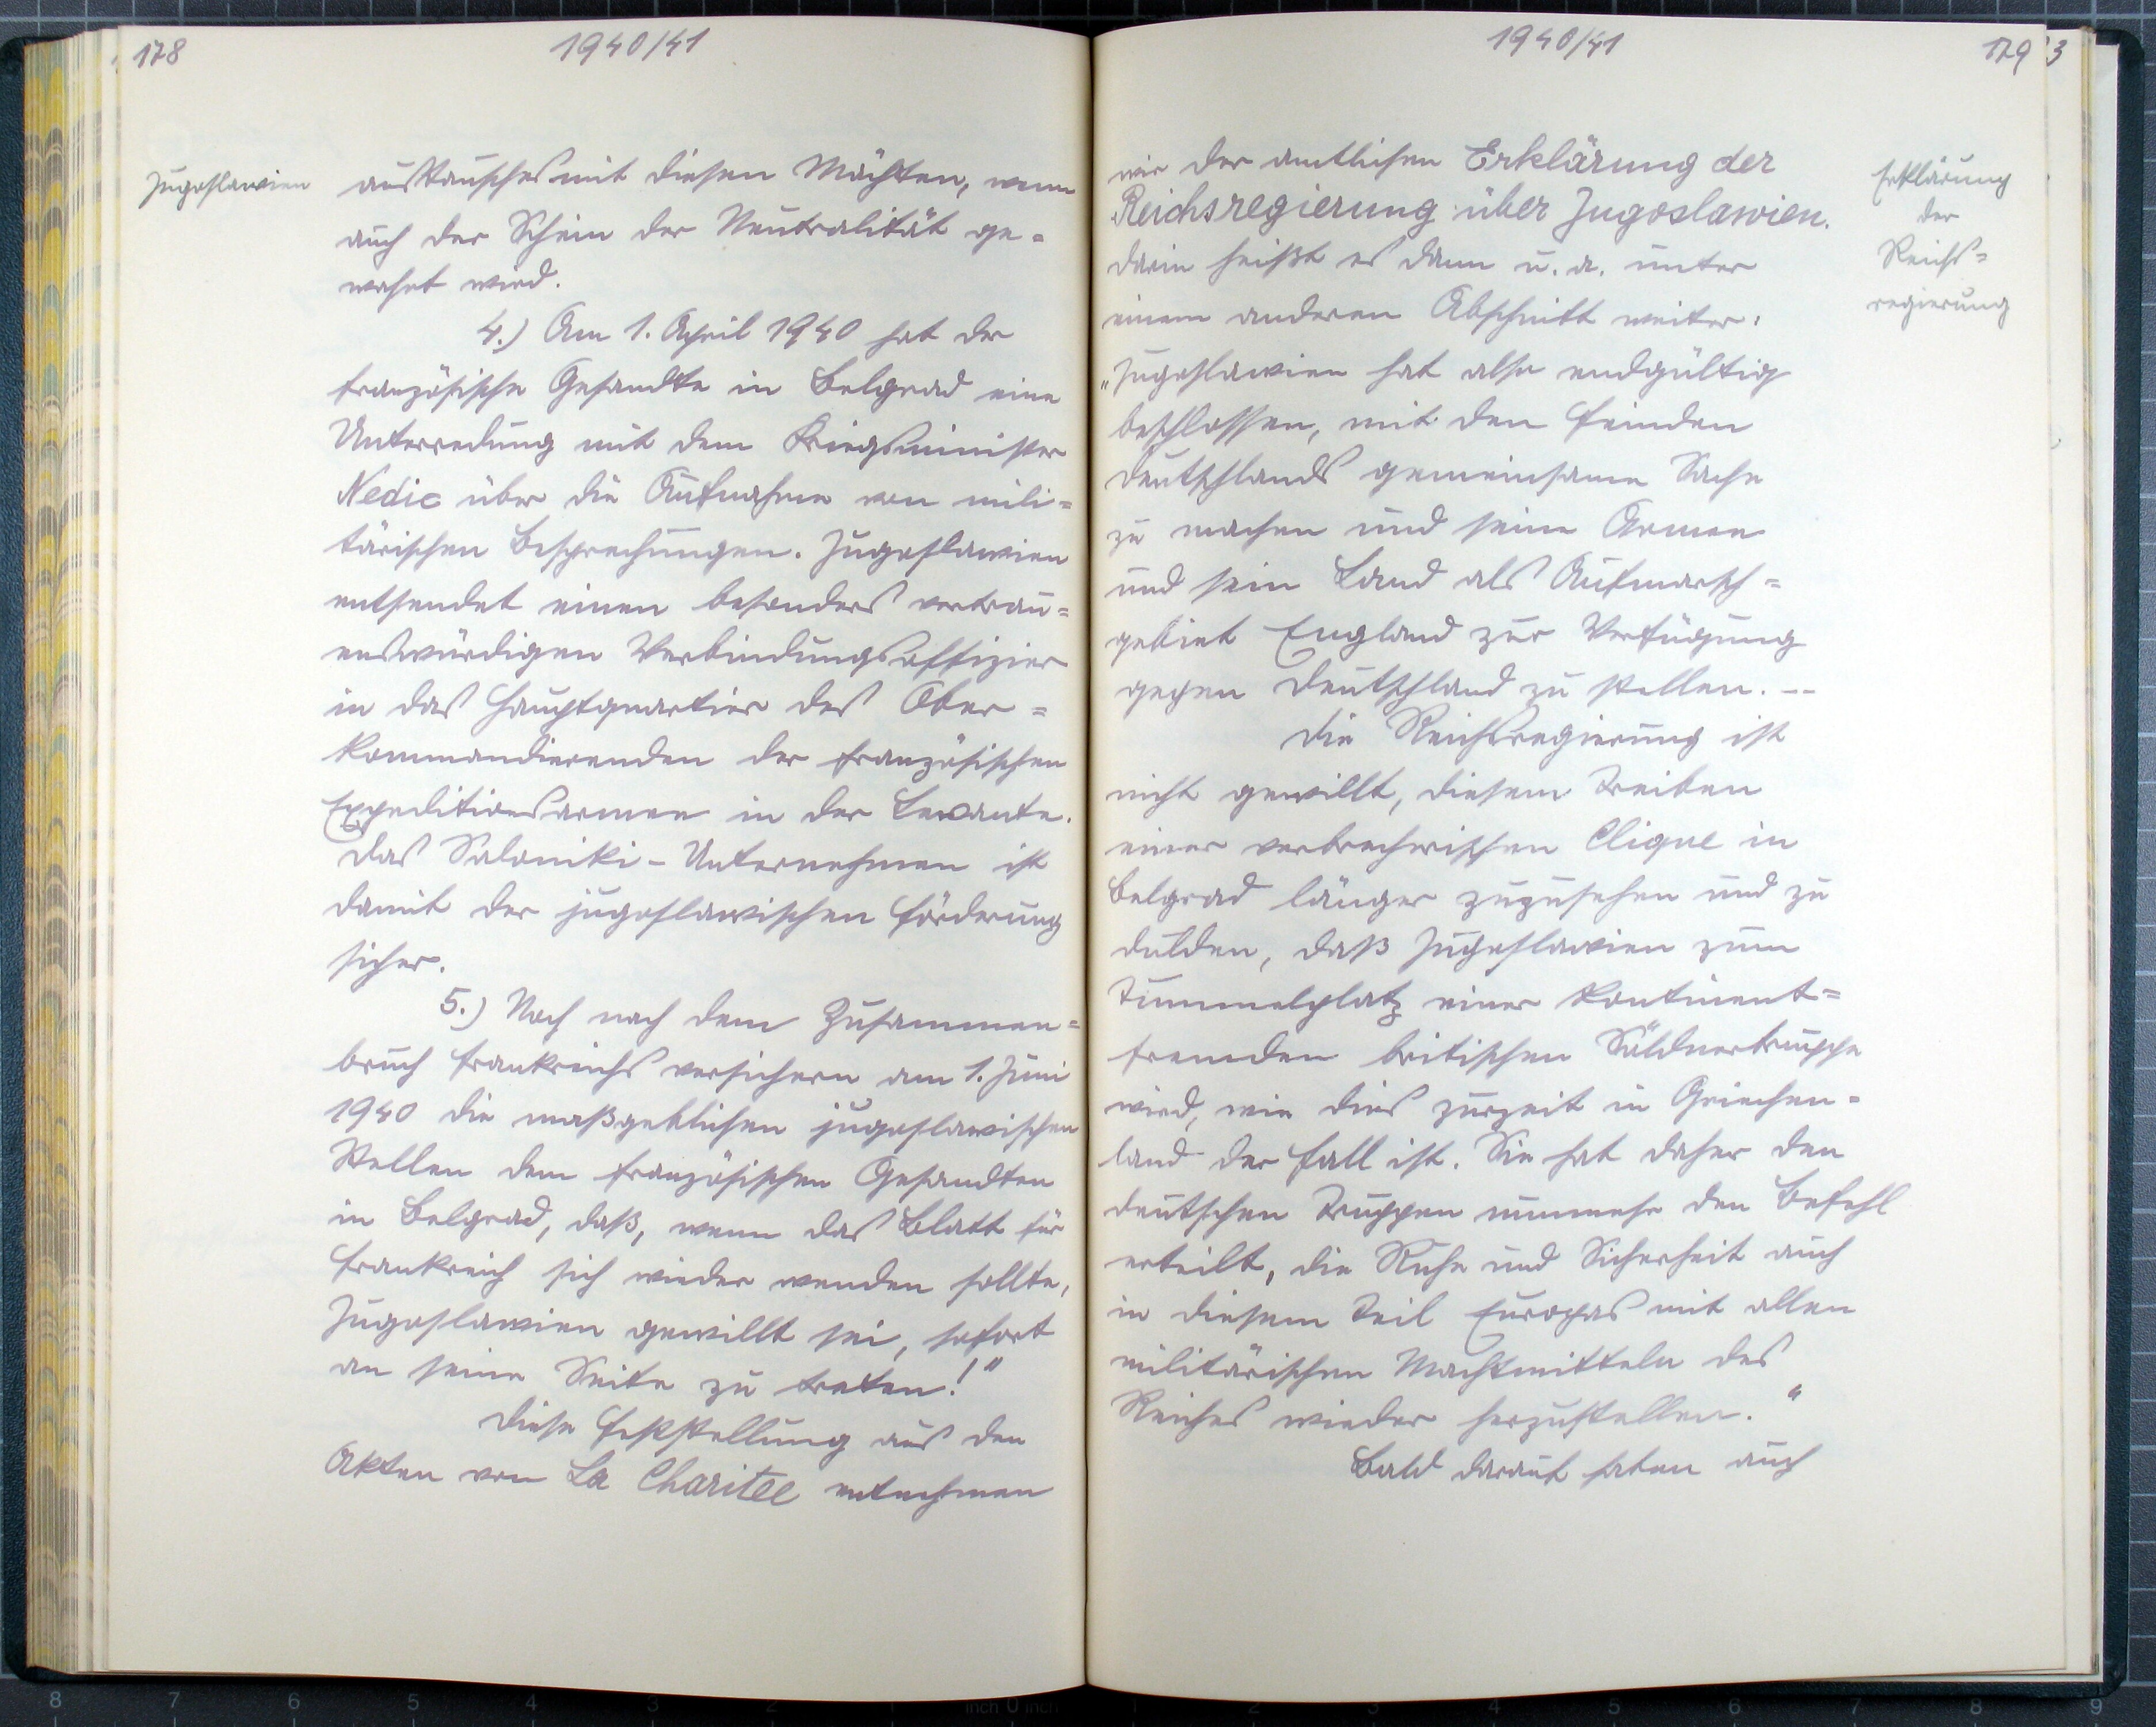 178
1940/41
Jugoslawien
austausches mit diesen Mächten, wenn
auch der Schein der Neutralität ge=
wahrt wird.
4.) Am 1. April 1940 hat der
französische Gesandte in Belgrad eine
Unterredung mit dem Kriegsminister
Nedic über die Aufnahme von mili=
tärischen Besprechungen. Jugoslawien
entsendet einen besonders vertrau=
enswürdigen Verbindungsoffizier
in das Hauptquartier des Ober=
kommandierenden der französischen
Expeditionsarmee in der Levante.
Das Saloniki-Unternehmen ist
damit der jugoslawischen Förderung
sicher.
5.) Noch nach dem Zusammen=
bruch Frankreichs versichern am 1. Juni
1940 die maßgeblichen jugoslawischen
Stellen dem französischen Gesandten
in Belgrad, daß, wenn das Blatt für
Frankreich sich wieder wenden sollte,
Jugoslawien gewillt sei, sofort
an seine Seite zu treten!"
Diese Feststellung aus den
Akten von La Charitee entnehmen
1940/41
179
3
wir der amtlichen Erklärung der
Reichsregierung über Jugoslawien.
Darin heißt es dann u. a. unter
einem anderen Abschnitt weiter:
„Jugoslawien hat also endgültig
beschlossen, mit den Feinden
Deutschlands gemeinsame Sache
zu machen und seine Armee
und sein Land als Aufmarsch=
gebiet England zur Verfügung
gegen Deutschland zu stellen. --
Die Reichsregierung ist
nicht gewillt, diesem Treiben
einer verbrecherischen Clique in
Belgrad länger zuzusehen und zu
dulden, daß Jugoslawien zum
Tummelplatz einer kontinent=
fremden britischen Söldnertruppe
wird, wie dies zurzeit in Griechen=
land der Fall ist. Sie hat daher den
deutschen Truppen nunmehr den Befehl
erteilt, die Ruhe und Sicherheit auch
in diesem Teil Europas mit allen
militärischen Machtmitteln des
Reiches wieder herzustellen."
Bald darauf haben auch
Erklärung
der
Reichs=
regierung
8 7 6 5 4 3 2 1 inch 0 inch 1 2 3 4 5 6 7 8 9